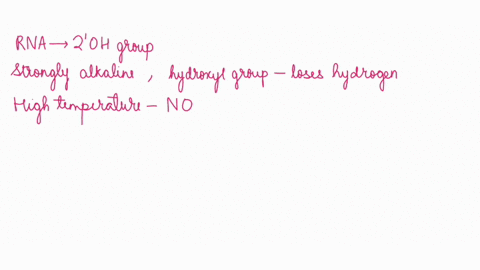 RNA → 2'OH group
Strongly alkaline, hydroxyl group - loses hydrogen
High temperature - NO